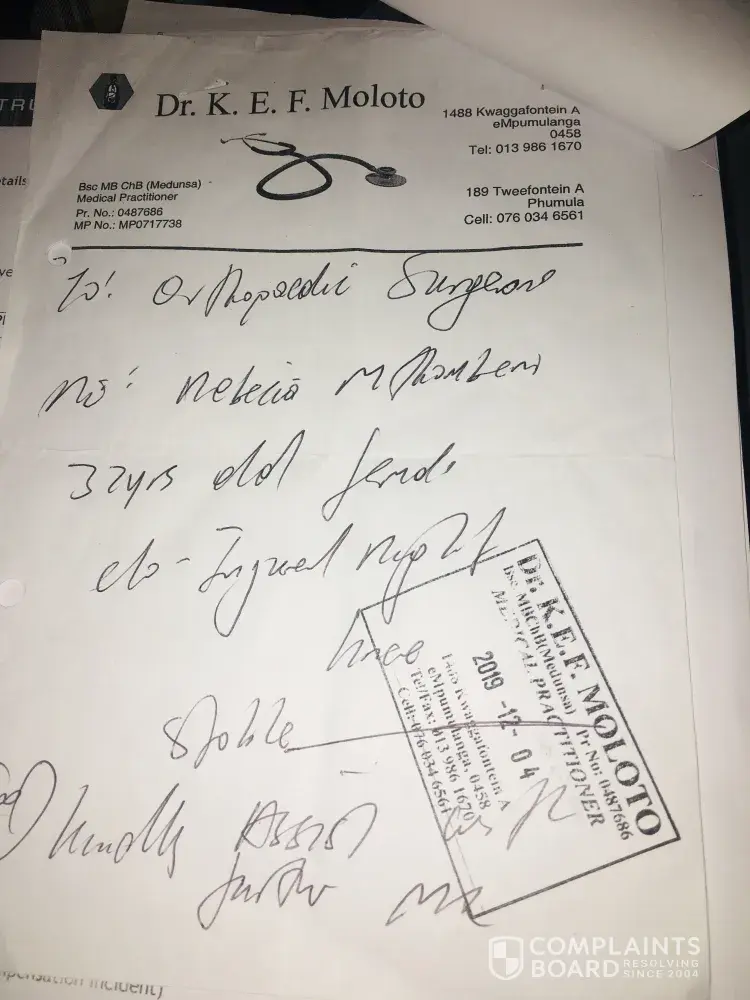 TRU
etails
Dr. K. E. F. Moloto
1488 Kwaggafontein A
eMpumulanga
0458
Tel: 013 986 1670
Bsc MB ChB (Medunsa)
Medical Practitioner
Pr. No.: 0487686
MP No.: MP0717738
189 Tweefontein A
Phumula
Cell: 076 034 6561
To: Orthopaedic Surgeon
32yrs old
c/o - Injured Right
knee
Stable
Kindly Assist
further
DR. K.E.F. MOLOTO
Bsc MBChB(Medunsa) Pr No: 0487686
MEDICAL PRACTITIONER
2019 -12- 04
1488 Kwaggafontein A
eMpumulanga, 0458
Tel/Fax: 013 986 1670
Cell: 076 034 6561
COMPLAINTS
BOARD RESOLVING
SINCE 2004